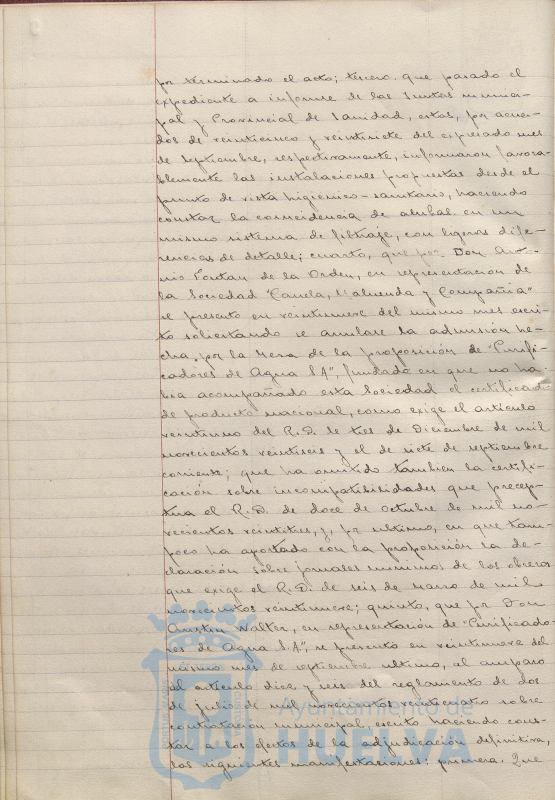 por terminado el acto; tercero. que pasado el
expediente a informe de las Juntas munici-
pal y Provincial de Sanidad, estas, por acuer-
dos de veinticinco y veintisiete del expresado mes
de septiembre, respectivamente, informaron favora-
blemente las instalaciones propuestas desde el
punto de vista higienico-sanitario, haciendo
constar la coincidencia de ambas en un
mismo sistema de filtraje, con ligeras dife-
rencias de detalle; cuarto, que por Don Anto-
nio de la Orden, en representación de
la Sociedad "Canela, y Compañia"
se presento en veintinueve del mismo mes escri-
to solicitando se anulase la admisión he-
cha por la Mesa de la proposición de "Purifi-
cadores de Agua S.A", fundado en que no ha-
bia acompañado esta Sociedad el certificado
de producto nacional, como exige el articulo
veintiuno del R.D. de tres de Diciembre de mil
novecientos veintiseis y el de siete de septiembre
corriente; que ha omitido tambien la certifi-
cación sobre incompatibilidades que precep-
tua el R.D. de doce de octubre de mil no-
vecientos veintitres, y, por ultimo, en que tam-
poco ha aportado con la proposición la de-
claración sobre jornales minimos de los obreros
que exige el R.D. de seis de Marzo de mil
novecientos veintinueve; quinto, que por Don
Austin Walter, en representación de "Purificado-
res de Agua S.A", se presento en veintinueve del
mismo mes de septiembre ultimo, al amparo
del articulo diez y seis del reglamento de dos
de julio de mil novecientos veinticuatro sobre
contratación municipal, escrito haciendo cons-
tar a los efectos de la adjudicación definitiva,
las siguientes manifestaciones: primera. Que
Ayuntamiento de
HUELVA